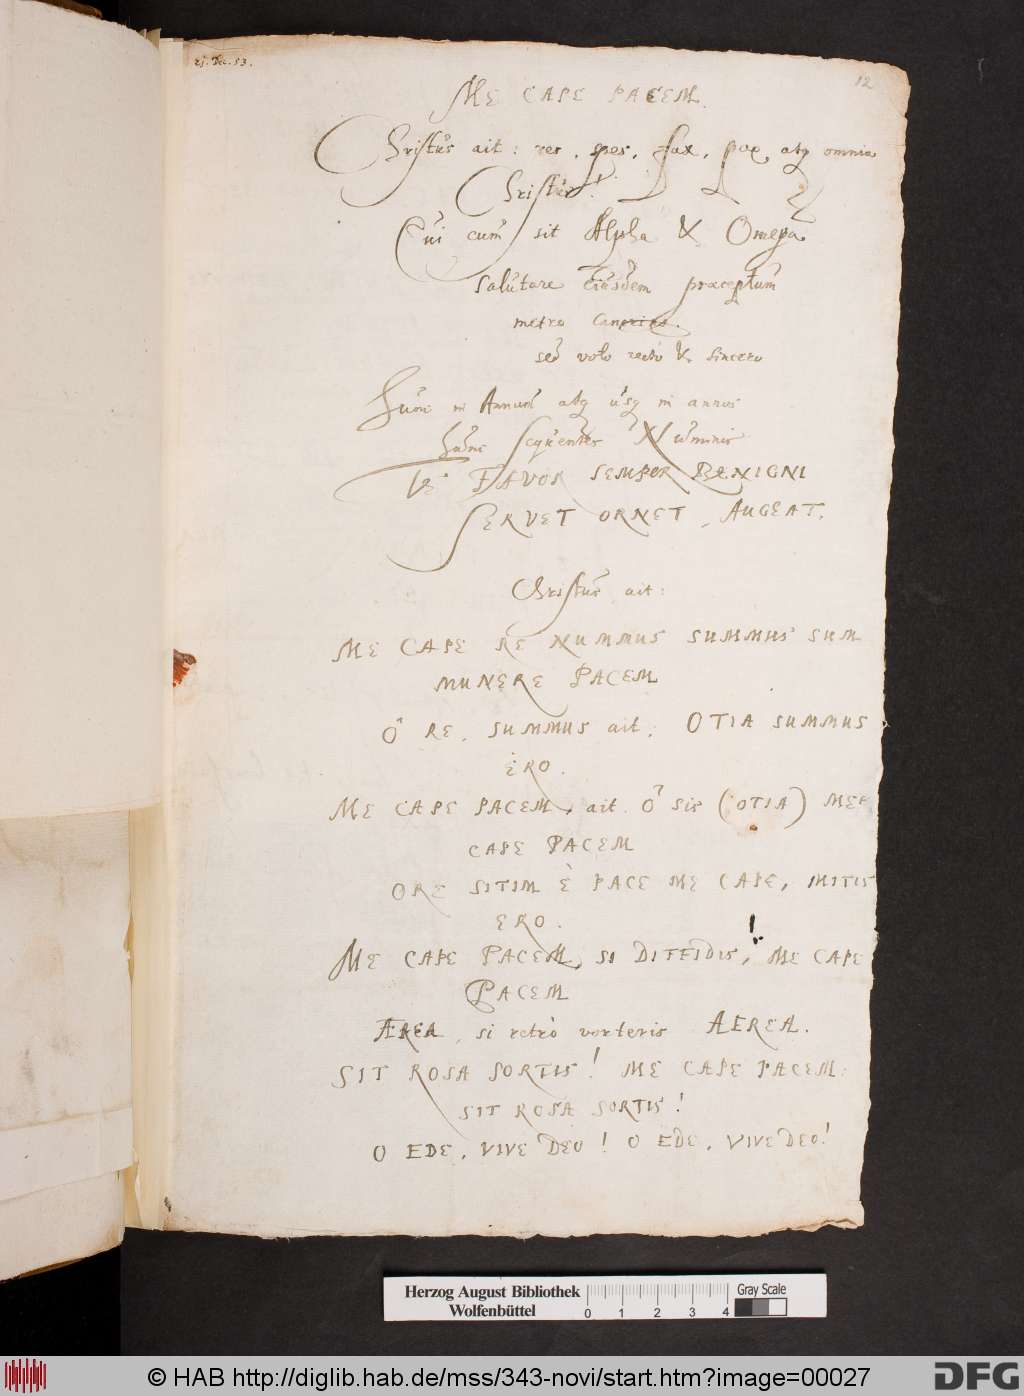 25. Dec. 53.
12
ME CAPE PACEM.
Christus ait: res, spes, fax, pax, atq omnia
Christus!
Cui cum sit Alpha & Omega
salutare eiusdem præceptum
metro
sed voto recto & sincero
Hunc in Annum atq usq in annos
hunc sequentes Numinis
Ut FAVOR SEMPER BENIGNI
SERVET ORNET, AUGEAT.
Christus ait:
ME CAPE RE NUMMUS SUMMUS SUM
MUNERE PACEM
Ô RE. SUMMUS ait: OTIA SUMMUS
ERO.
ME CAPE PACEM, ait. Ô sis (OTIA) ME
CAPE PACEM
ORE SITIM È PACE ME CAPE, MITIS
ERO.
ME CAPE PACEM, SI DIFFIDIS, ME CAPE
PACEM
ÆREA, si retrò verteris AEREA.
SIT ROSA SORTIS! ME CAPE PACEM:
SIT ROSA SORTIS!
O EDE, VIVE DEO! O EDE, VIVE DEO!
Herzog August Bibliothek
Wolfenbüttel
0 1 2 3 4
Gray Scale
© HAB http://diglib.hab.de/mss/343-novi/start.htm?image=00027
DFG